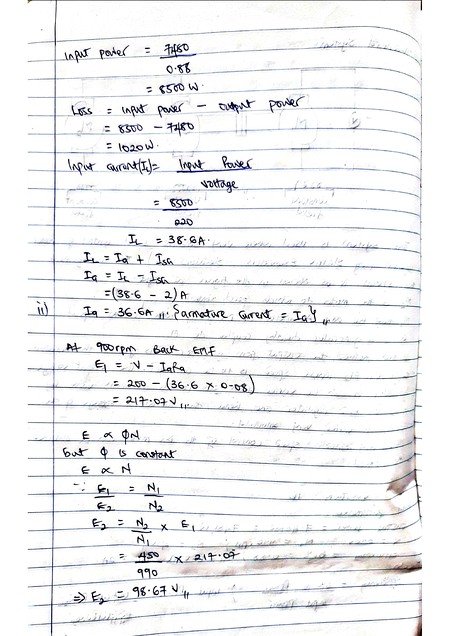 Input power = 7480
0.88
= 8500 W.
Loss = input power - output power
= 8500 - 7480
= 1020 W.
Input current (IL) = Input Power
voltage
= 8500
220
IL = 38.6A.
IL = Ia + Ish
Ia = IL - Ish
= (38.6 - 2) A
ii) Ia = 36.6A,, . {armature current = Ia},,
At 900rpm Back EMF
E1 = V - IaRa
= 200 - (36.6 x 0.08)
= 217.07 V,,
E ∝ ΦN
but Φ is constant
E ∝ N
∵ E1 = N1
E2 N2
E2 = N2 x E1
N1
= 450 x 217.07
990
⇒ E2 = 98.67 V,,